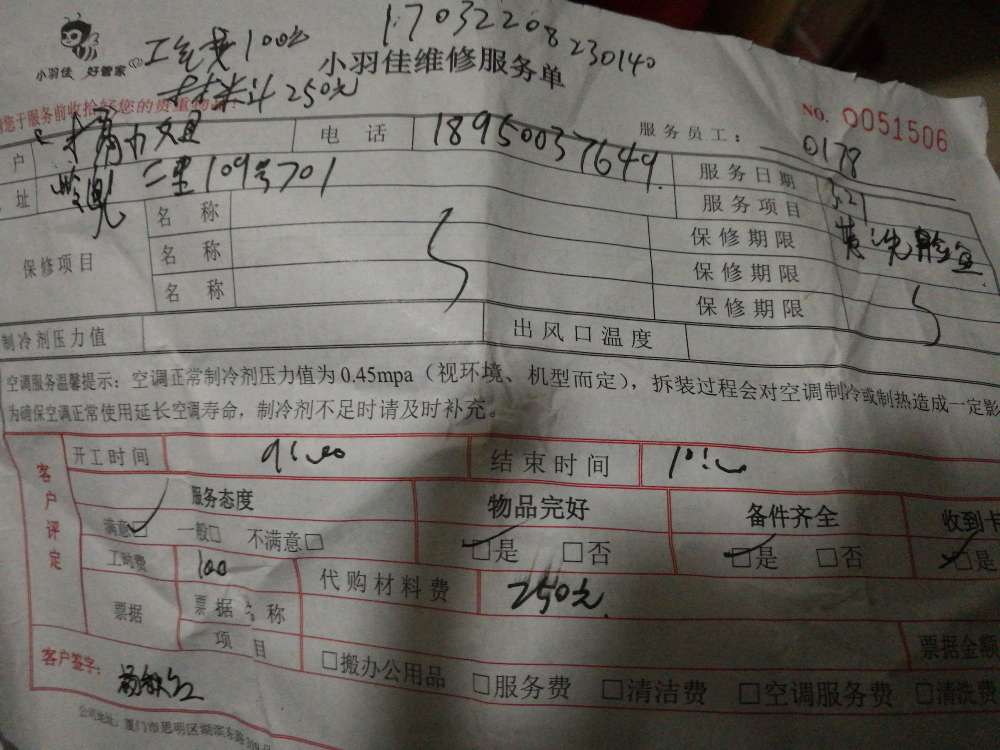 小羽佳 好管家
工钱费100元
17032208230140
小羽佳维修服务单
材料250元
您于服务前收拾好您的贵重物品
NO. 0051506
户
电 话 18950037649
服务员工： 0178
址 二里109号701
服务日期 3.21
服务项目
保修项目
名 称 保修期限
名 称 保修期限
名 称 保修期限
制冷剂压力值 出风口温度
空调服务温馨提示：空调正常制冷剂压力值为0.45mpa（视环境、机型而定），拆装过程会对空调制冷或制热造成一定影
为确保空调正常使用延长空调寿命，制冷剂不足时请及时补充。
客户评定
开工时间 9:00 结束时间 10:00
服务态度 物品完好 备件齐全 收到卡
满意□ 一般□ 不满意□ □是 □否 □是 □否 □是
工时费 100 代购材料费 250元
票据 票据名称
项 目 票据金额
□搬办公用品 □服务费 □清洁费 □空调服务费 □清洗费
客户签字：
公司地址：厦门市思明区